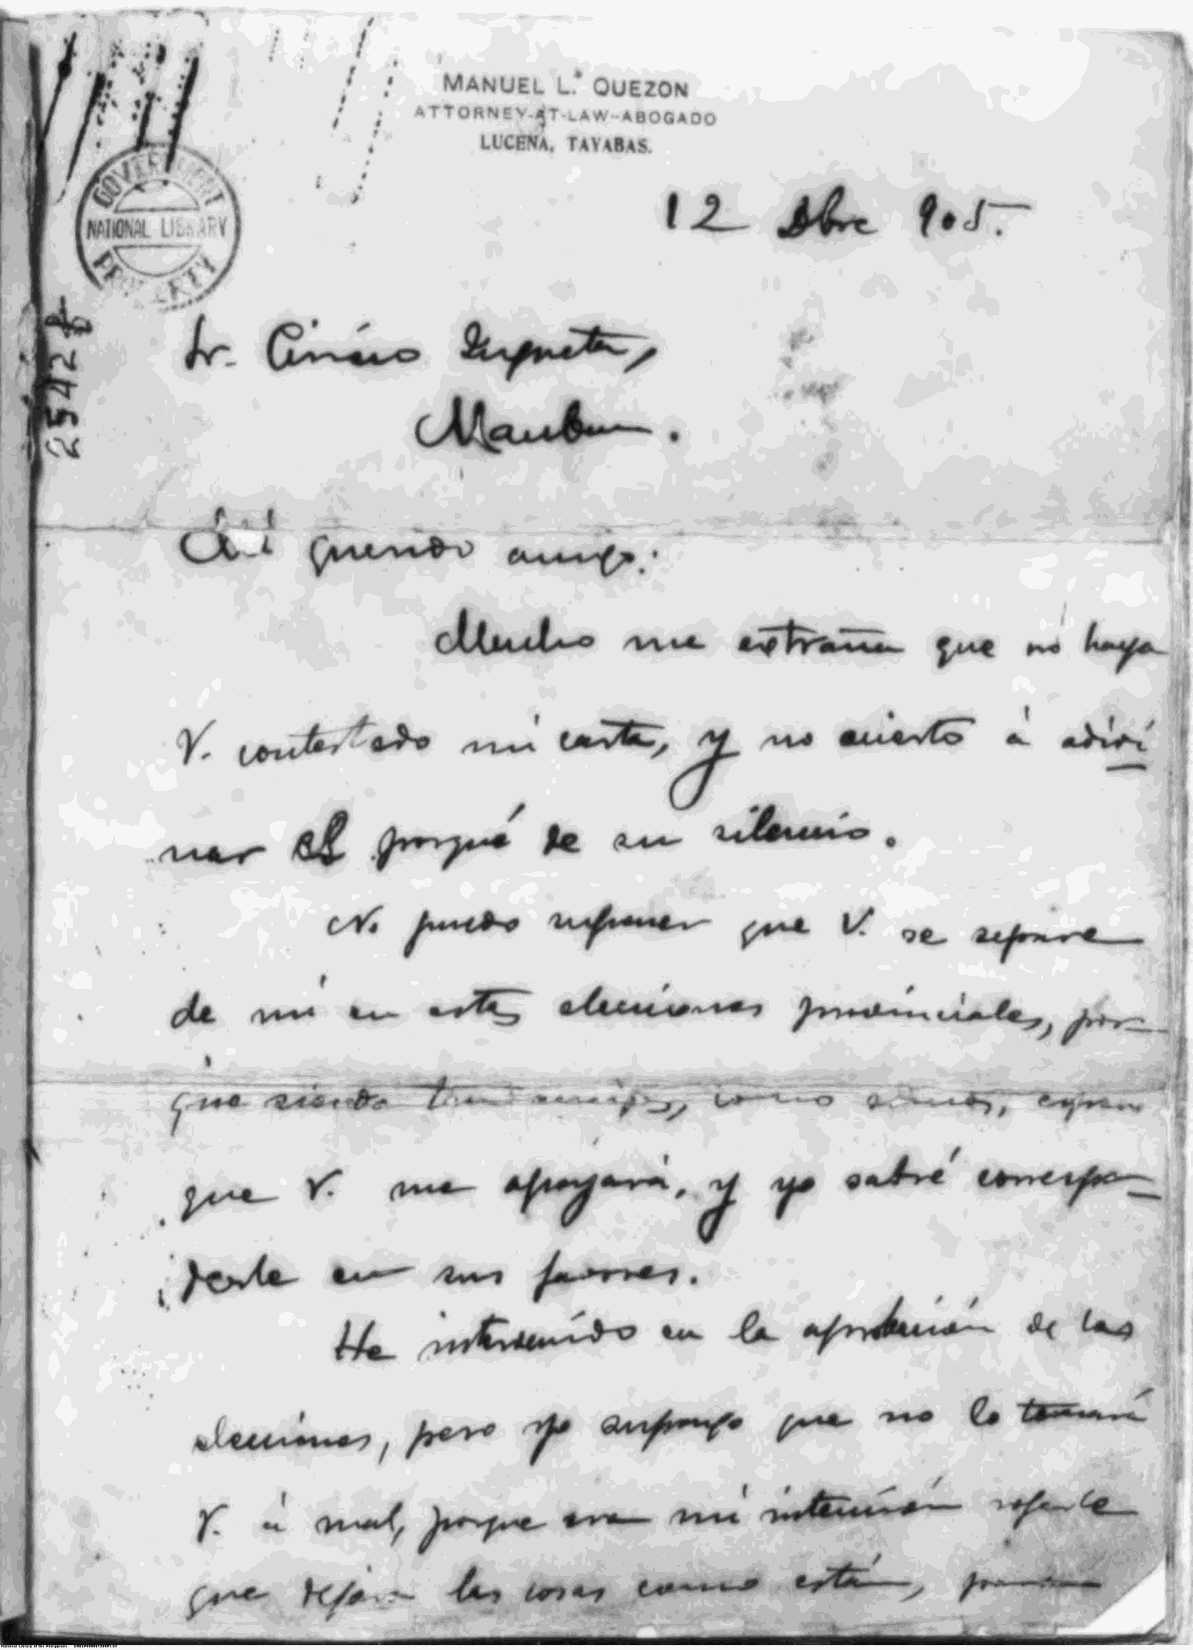 MANUEL L. QUEZON
ATTORNEY-AT-LAW-ABOGADO
LUCENA, TAYABAS.
12 Dbre 905.
GOVERNMENT
NATIONAL LIBRARY
PROPERTY
2542
Sr.
Mauban.
Mi querido amigo:
Mucho me extraña que no haya
V. contestado mi carta, y no acierto á adivi
nar el porqué de su silencio.
No puedo suponer que V. se separe
de mí en estas elecciones provinciales, por-
que siendo tan amigos, como somos, espero
que V. me apoyará, y yo sabré correspon-
derle en sus favores.
He intervenido en la aprobación de las
elecciones, pero yo supongo que no lo tomará
V. á mal, porque era mi intención
que dejara las cosas como están,